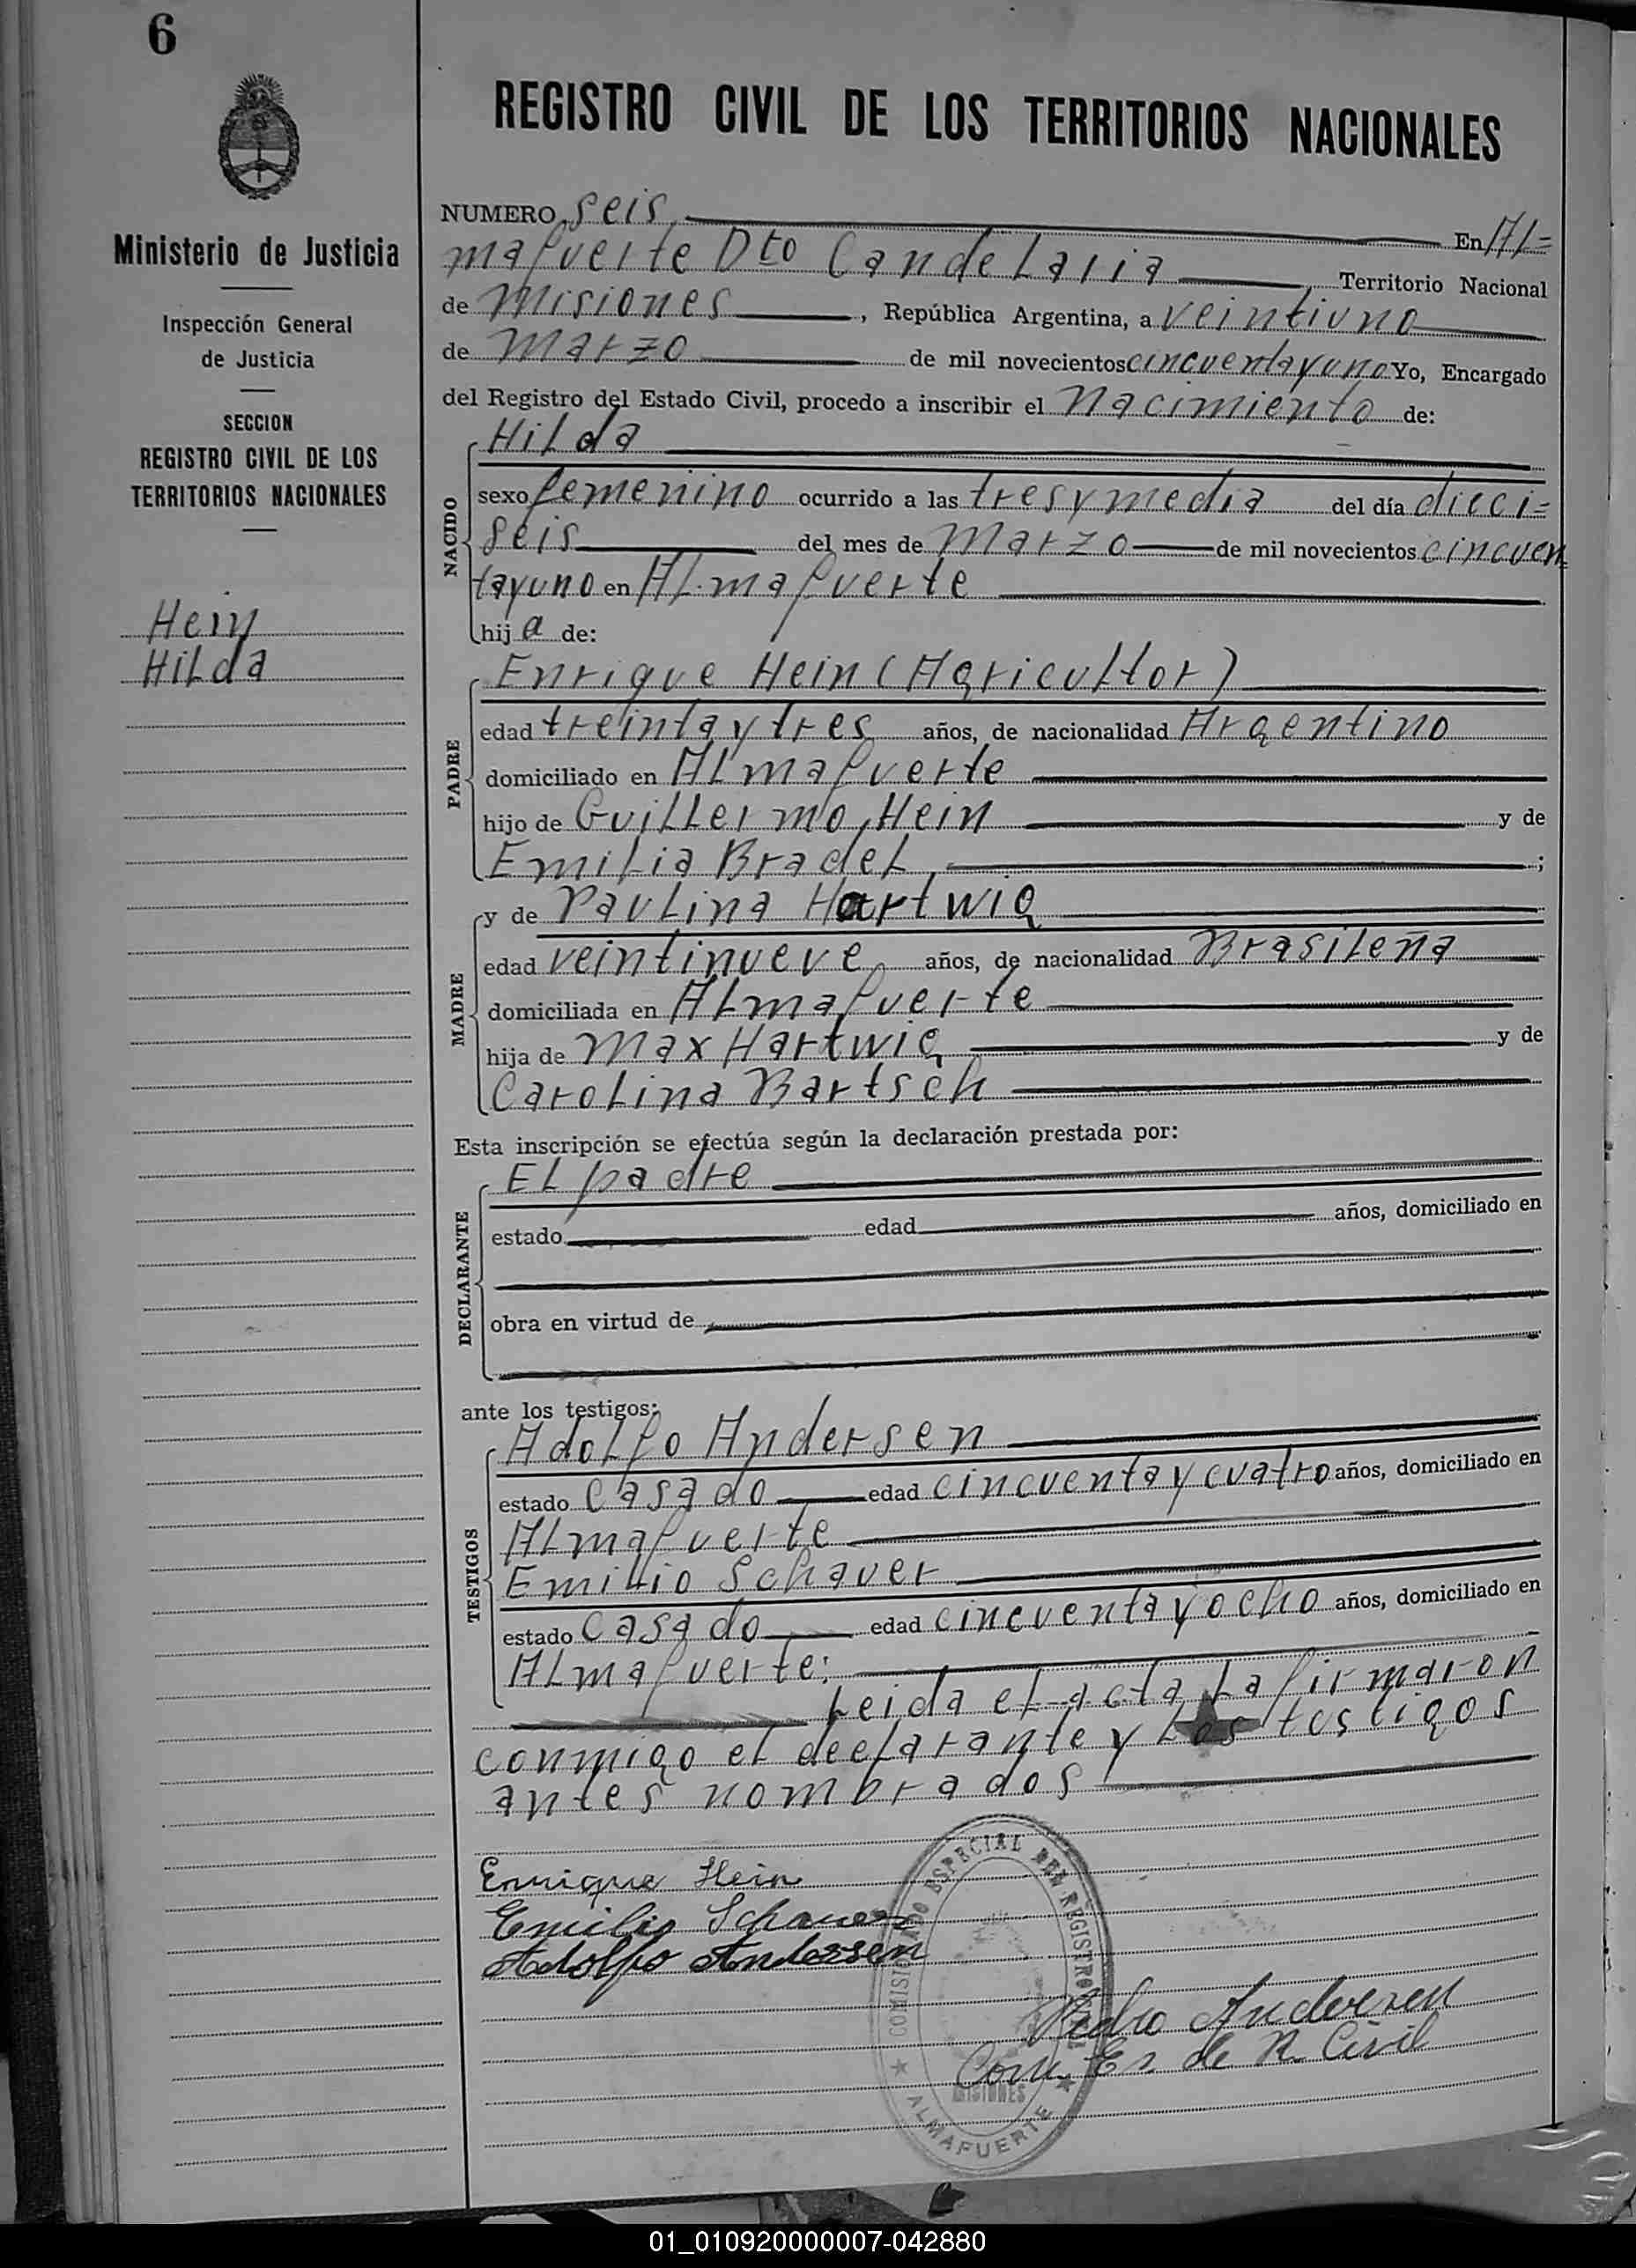 6
REGISTRO CIVIL DE LOS TERRITORIOS NACIONALES
Ministerio de Justicia
Inspección General
de Justicia
SECCION
REGISTRO CIVIL DE LOS
TERRITORIOS NACIONALES
Hein
Hilda
NUMERO seis En Al=
mafuerte Dto Candelaria Territorio Nacional
de Misiones, República Argentina, a veintiuno
de Marzo de mil novecientos cincuentayuno Yo, Encargado
del Registro del Estado Civil, procedo a inscribir el Nacimiento de:
NACIDO
Hilda
sexo femenino ocurrido a las tres y media del día dieci=
seis del mes de Marzo de mil novecientos cincuen
tayuno en Almafuerte
hija de:
PADRE
Enrique Hein (Agricultor)
edad treinta y tres años, de nacionalidad Argentino
domiciliado en Almafuerte
hijo de Guillermo Hein y de
Emilia Bradel ;
MADRE
y de Paulina Hartwig
edad veintinueve años, de nacionalidad Brasileña
domiciliada en Almafuerte
hija de Max Hartwig y de
Carolina Bartsch
Esta inscripción se efectúa según la declaración prestada por:
DECLARANTE
El padre
estado edad años, domiciliado en
obra en virtud de
ante los testigos:
TESTIGOS
Adolfo Andersen
estado Casado edad cincuenta y cuatro años, domiciliado en
Almafuerte
Emilio Schauer
estado Casado edad cincuenta y ocho años, domiciliado en
Almafuerte:
Leida el acta la firmaron
conmigo el declarante y los testigos
antes nombrados
Enrique Hein
Emilio Schauer
Adolfo Andersen
COMISIONADO ESPECIAL DEL REGISTRO
MISIONES
ALMAFUERTE
Pedro Andersen
Com. Es de R. Civil
01_010920000007-042880